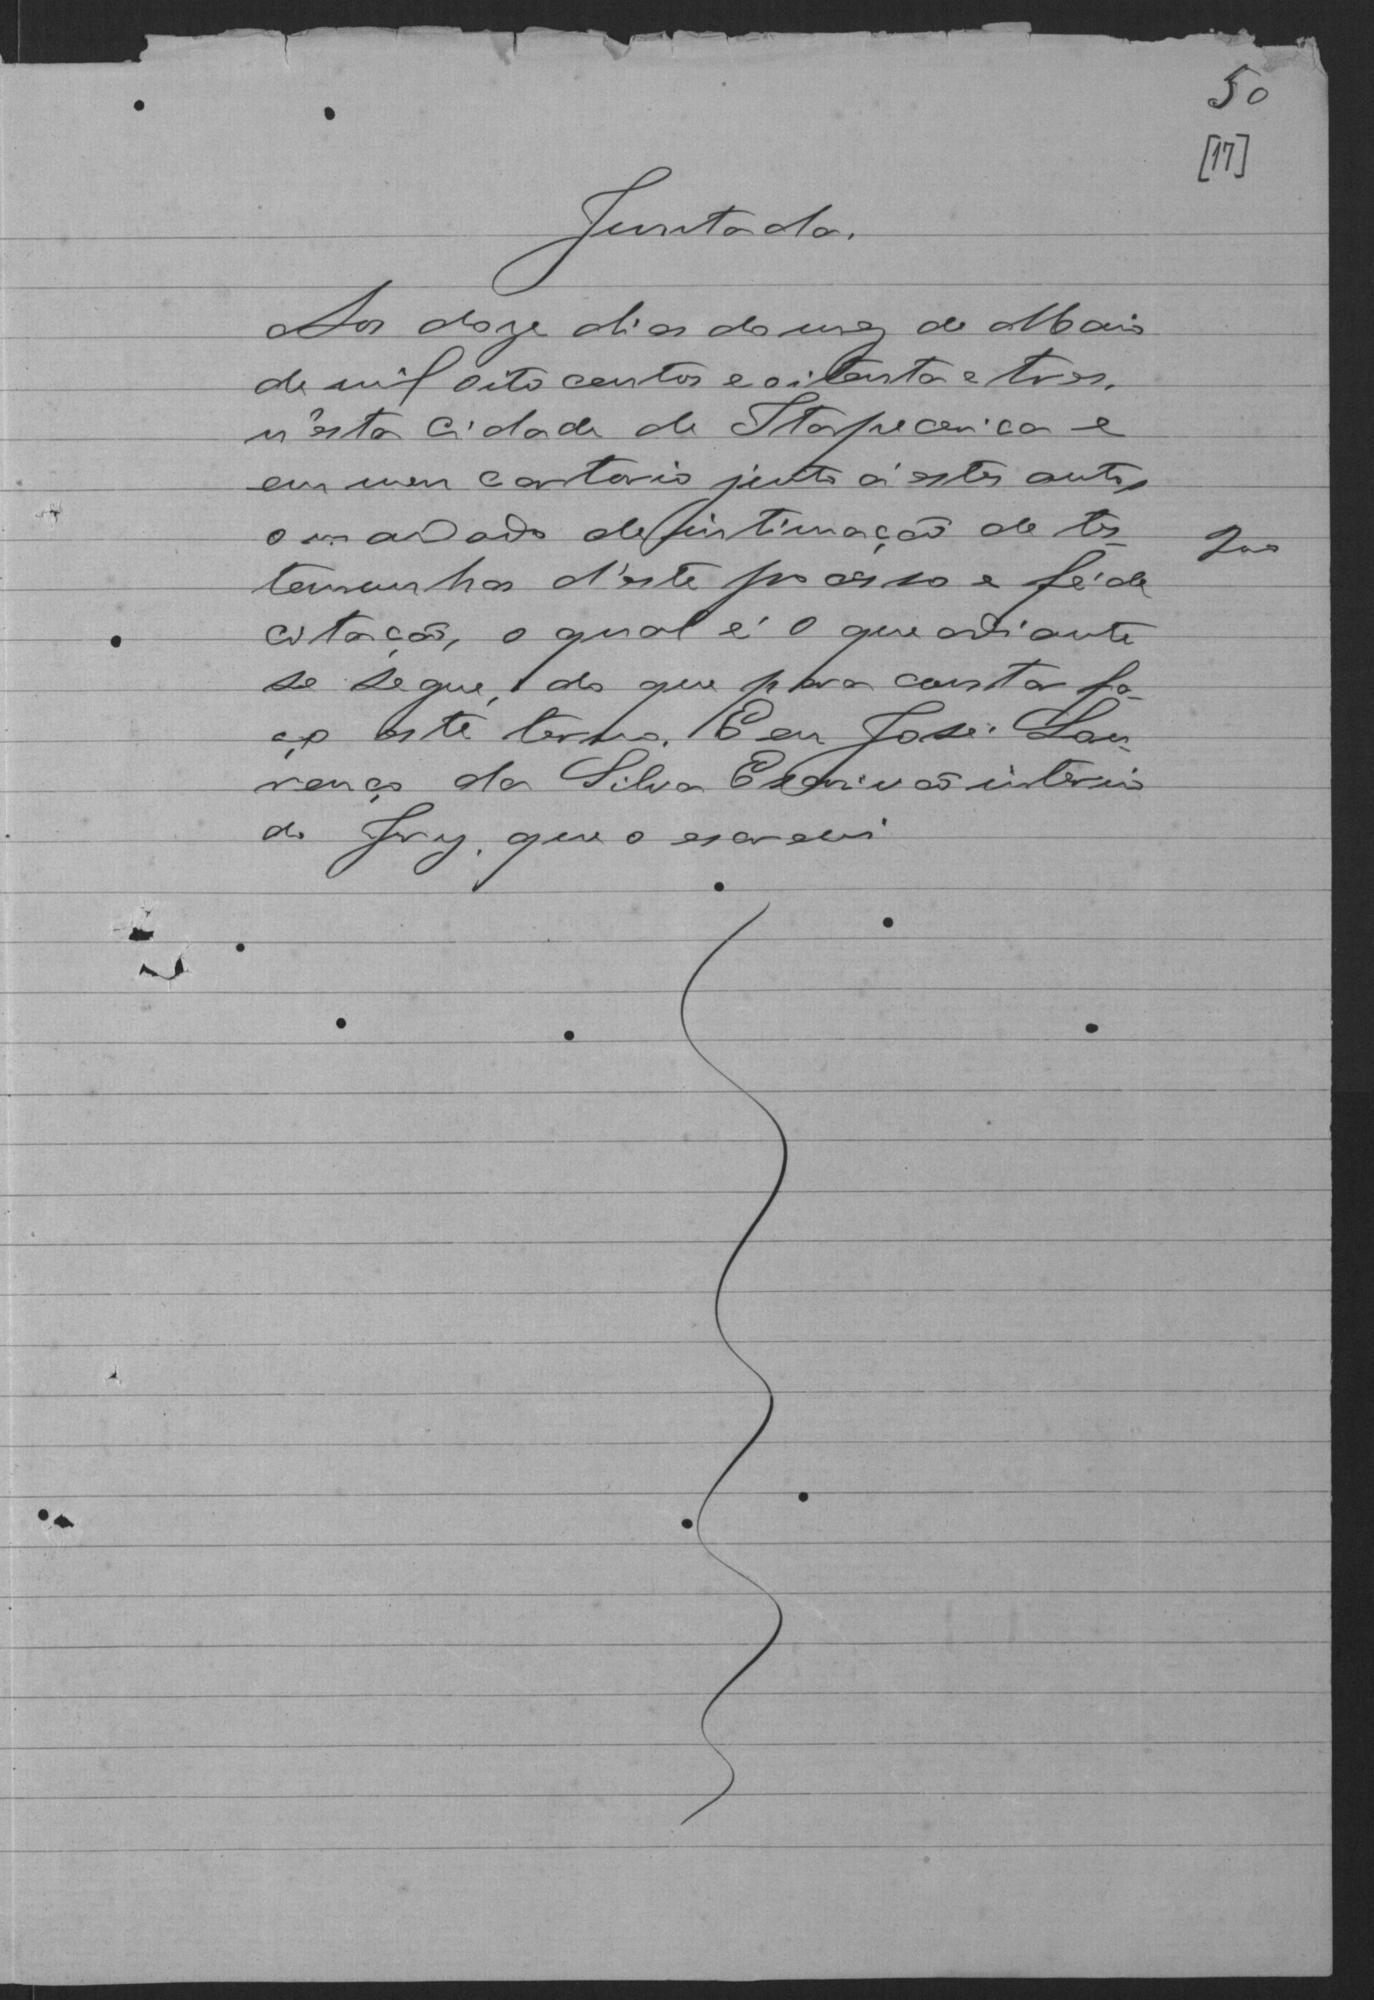 50
[17]
Juntada.
Aos doze dias do mez de Maio
de mil oito centos e oitenta e tres,
n'esta Cidade de Itapecerica e
em meu cartorio junto á estes autos
o mandado de intimação de tes-
temunhas d'este processo e fé de
citação, o qual é o que adiante
se segue, do que para constar fa-
ço este termo. Eu José Lou-
renço da Silva Escrivão interino
do Jury, que o escrevi